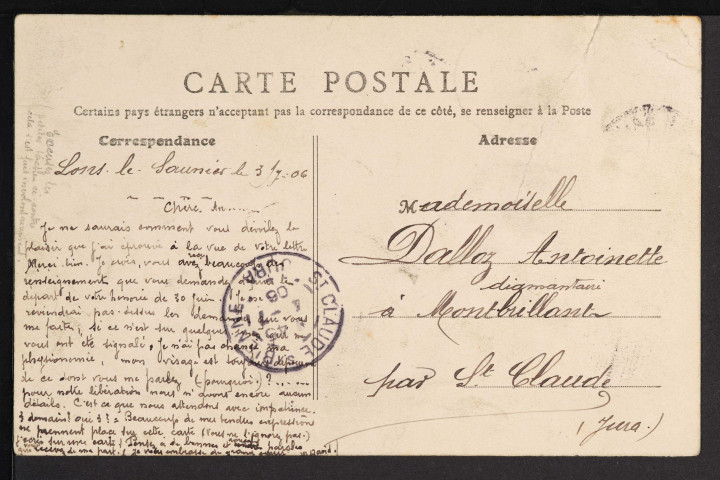 CARTE POSTALE
Certains pays étrangers n'acceptant pas la correspondance de ce côté, se renseigner à la Poste
Correspondance
Adresse
Lons-le-Saunier le 3/7-06
Chère An......
Je ne saurais comment vous décrire le
plaisir que j'ai éprouvé à la vue de votre lettre
Merci bien. Je crois, vous avez reçu beaucoup de
renseignement que vous demandez avant le
départ de votre honorée de 30 juin. Je ne
reviendrai pas dessus les demandes que vous
me faites, si ce n'est sur quelques uns qui
vous ont été signalé. Je n'ai pas changé ma
physionomie, mon visage est toujours
de ce dont vous me parlez (pourquoi)? ......
pour notre libération nous n'avons encore aucun
détails. C'est ce que nous attendons avec impatience.
3 demain? oui 3? = Beaucoup de mes tendres expressions
ne prennent place sur cette carte (vous ne l'ignorez pas.)
sur une carte! Pensez à de bonnes et paroles
que recevez de ma part. Je vous embrasse de grand
Mademoiselle
Dalloz Antoinette
diamantaire
à Montbrillant
par St Claude
(Jura.)
ST CLAUDE SUR BIENNE
JURA
06